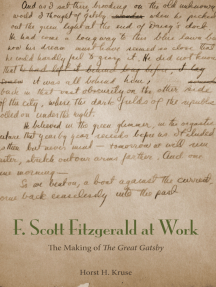 And as I sat there brooding on the old unknown
world I thought of Gatsby when he picked
out the green light at the end of Daisy's dock.
He had come a long way to this blue lawn
now his dream must have seemed so close that
he could hardly fail to grasp it. He did not know
that he had left it behind him before
it was all behind him
back in that vast obscurity on the other side
of the city, where the dark fields of the republic
rolled on under the night.
He believed in the green glimmer, in the orgiastic
future that year by year recedes before us. It eluded
then but never mind — tomorrow we will run
faster, stretch out our arms farther. And one
fine morning —
So we beat on, a boat against the current,
borne back ceaselessly into the past
F. Scott Fitzgerald at Work
The Making of The Great Gatsby
Horst H. Kruse